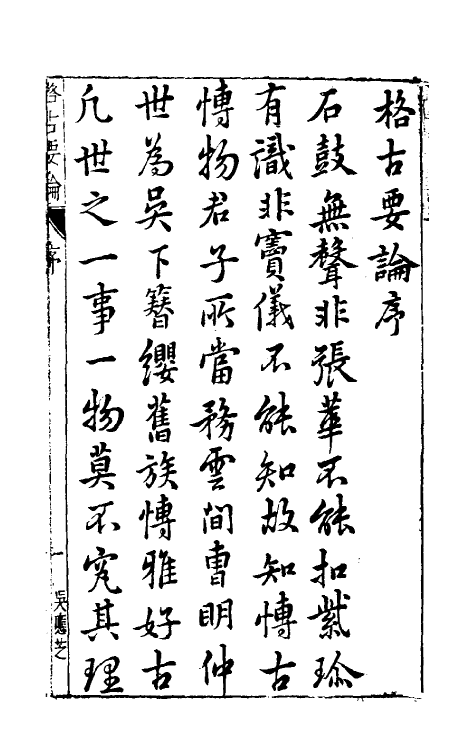 格古要論序
石鼓無聲非張華不能扣紫珎
有識非竇儀不能知故知愽古
愽物君子所當務雲間曺明仲
世為吳下簪纓舊族愽雅好古
凡世之一事一物莫不究其理
格古要論
序
一
吳應芝